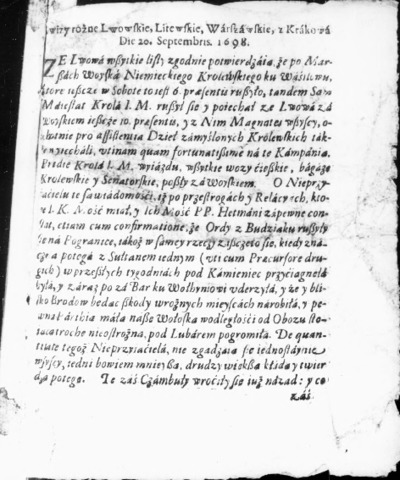 wizy rożne Lwowskie, Litewskie, Wárszáwskie, z Krákowá
Die 20. Septembris. 1698.
ZE Lwowá wszytkie listy zgodnie potwierdzáią, że po Mar-
szách Woyská Niemieckiego Krolewskiego ku Wásilowu,
ktore ieszcze w Sobote to iest 6. præsenti ruszyło, tandem Sam
Máiestat Krolá I. M. ruszył się y poiechał ze Lwowá zá
Woyskiem ieszcze 10. præsentu, y z Nim Magnates wszyscy, o-
chotnie pro assistentia Dzieł zámyślonych Krolewskich ták-
wyiecháli, utinam quam fortunatissime ná te Kámpánią.
Pridie Krolá I. M. wyiázdu, wszytkie wozy ćięszkie, bágáże
Krolewskie y Senatorskie, poszły zá Woyskiem. O Nieprzy-
iaćielu te są wiádomości, iż po przestrogách y Relácyách, kto-
re I. K. Mość miał, y Ich Mość PP. Hetmáni zápewne con-
stat, etiam cum confirmatione, że Ordy z Budziaku ruszyły
się ná Pogránice, tákoż w sámey rzeczy ziśćiło się, kiedy zná-
czna potegá z Sułtanem iednym (uti cum Præcursore dru-
gich) w przeszłych tygodniách pod Kámieniec przyćiągnęłá
byłá, y záraz po zá Bar ku Wołyniowi uderzyłá, y że y bli-
sko Brodow bedąc szkody w rożnych mieyscách nárobiłá, y pe-
wna Párthia máła násze Wołoská w odległośći od Obozu sto-
iąca troche nieostrożna, pod Lubárem pogromiłá. De quan-
titate tegoż Nieprzyiaćielá, nie zgadzáią się iednostáynie
wszyscy, iedni bowiem mnieyszą, drudzy wiekszą kłádą y twier-
dzą potege. Te záś Czámbuły wroćiły się iuż názad: y co
záś